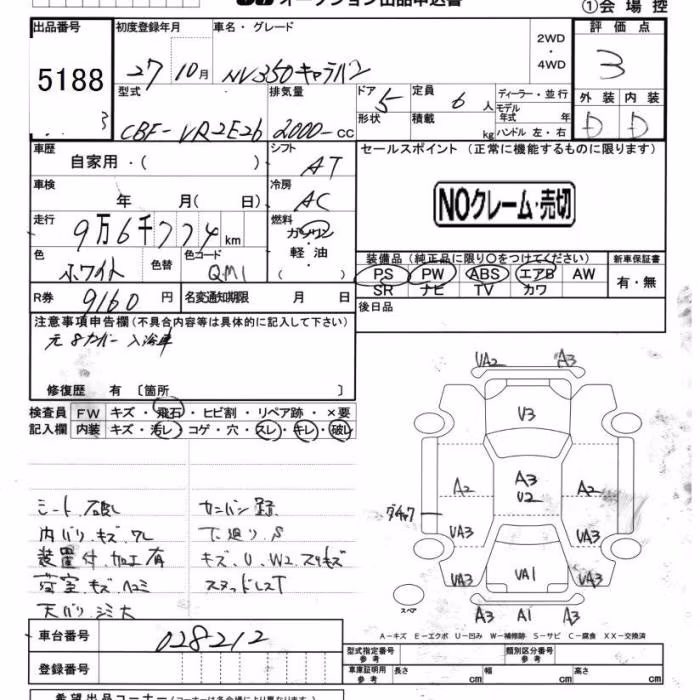 オークション出品申込書
①会場控
出品番号
5188
3
初度登録年月
27 10月
車名・グレード
NV350キャラバン
2WD
・
4WD
評価点
3
型式
CBF-VR2E26
排気量
2000 CC
ドア
5
形状
定員
6 人
積載
kg
ディーラー・並行
モデル
年式 年
ハンドル 左・右
外装
D
内装
D
車歴
自家用・( )
シフト
AT
車検
年 月( 日)
冷房
AC
走行
9万6千774 km
燃料
ガソリン
・
軽油
色
ホワイト
色替
色コード
QM1
R券
9160 円
名変通知期限 月 日
セールスポイント (正常に機能するものに限ります)
NOクレーム・売切
装備品 (純正品に限り○をつけてください)
PS PW ABS エアB AW
SR ナビ TV カワ
新車保証書
有・無
後日品
注意事項申告欄(不具合内容等は具体的に記入して下さい)
元8ナンバー 入浴車
修復歴 有 〔箇所 〕
検査員
記入欄
FW キズ・飛石・ヒビ割・リペア跡・×要
内装 キズ・汚レ・コゲ・穴・スレ・キレ・破レ
シート破レ
内バリ、キズ、ワレ
装置付、加工有
荷室、キズ、ヘコミ
天バリシミ大
下廻り、S
キズ、U、W2、スリキズ
スタッドレスT
UA2 A3
V3
A2
A3
U2
A2
UA3
UA3
UA3
UA1
UA3
A3 A1 A3
スペア
A−キズ E−エクボ U−凹み W−補修跡 S−サビ C−腐食 XX−交換済
車台番号
028212
登録番号
型式指定番号
参考
類別区分番号
参考
車庫証明用
参考
長さ cm
幅 cm
高さ cm
希望出品コーナー(コーナーは各会場により異なります)